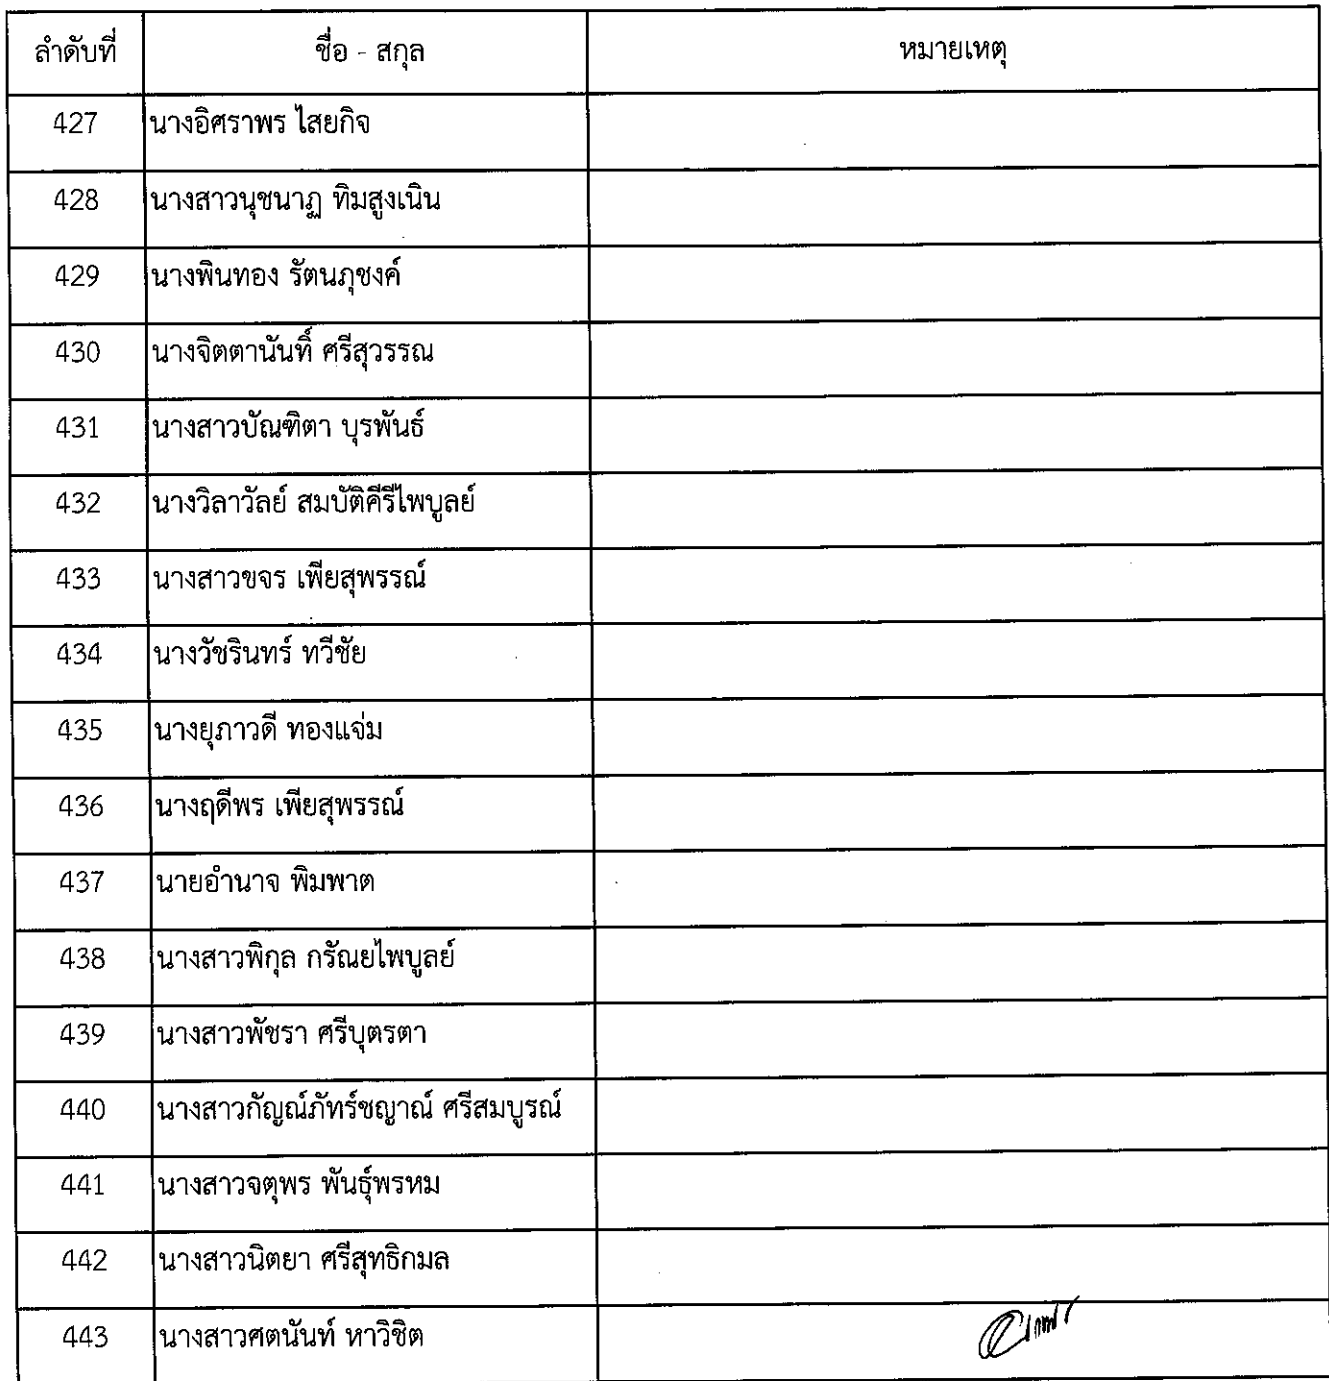 ลำดับที่ ชื่อ - สกุล หมายเหตุ
427 นางอิศราพร ไสยกิจ
428 นางสาวนุชนาฏ ทิมสูงเนิน
429 นางพินทอง รัตนภุชงค์
430 นางจิตตานันทิ์ ศรีสุวรรณ
431 นางสาวบัณฑิตา บุรพันธ์
432 นางวิลาวัลย์ สมบัติคีรีไพบูลย์
433 นางสาวขจร เพียสุพรรณ์
434 นางวัชรินทร์ ทวีชัย
435 นางยุภาวดี ทองแจ่ม
436 นางฤดีพร เพียสุพรรณ์
437 นายอำนาจ พิมพาต
438 นางสาวพิกุล กรัณยไพบูลย์
439 นางสาวพัชรา ศรีบุตรตา
440 นางสาวกัญณ์ภัทร์ชญาณ์ ศรีสมบูรณ์
441 นางสาวจตุพร พันธุ์พรหม
442 นางสาวนิตยา ศรีสุทธิกมล
443 นางสาวศตนันท์ หาวิชิต